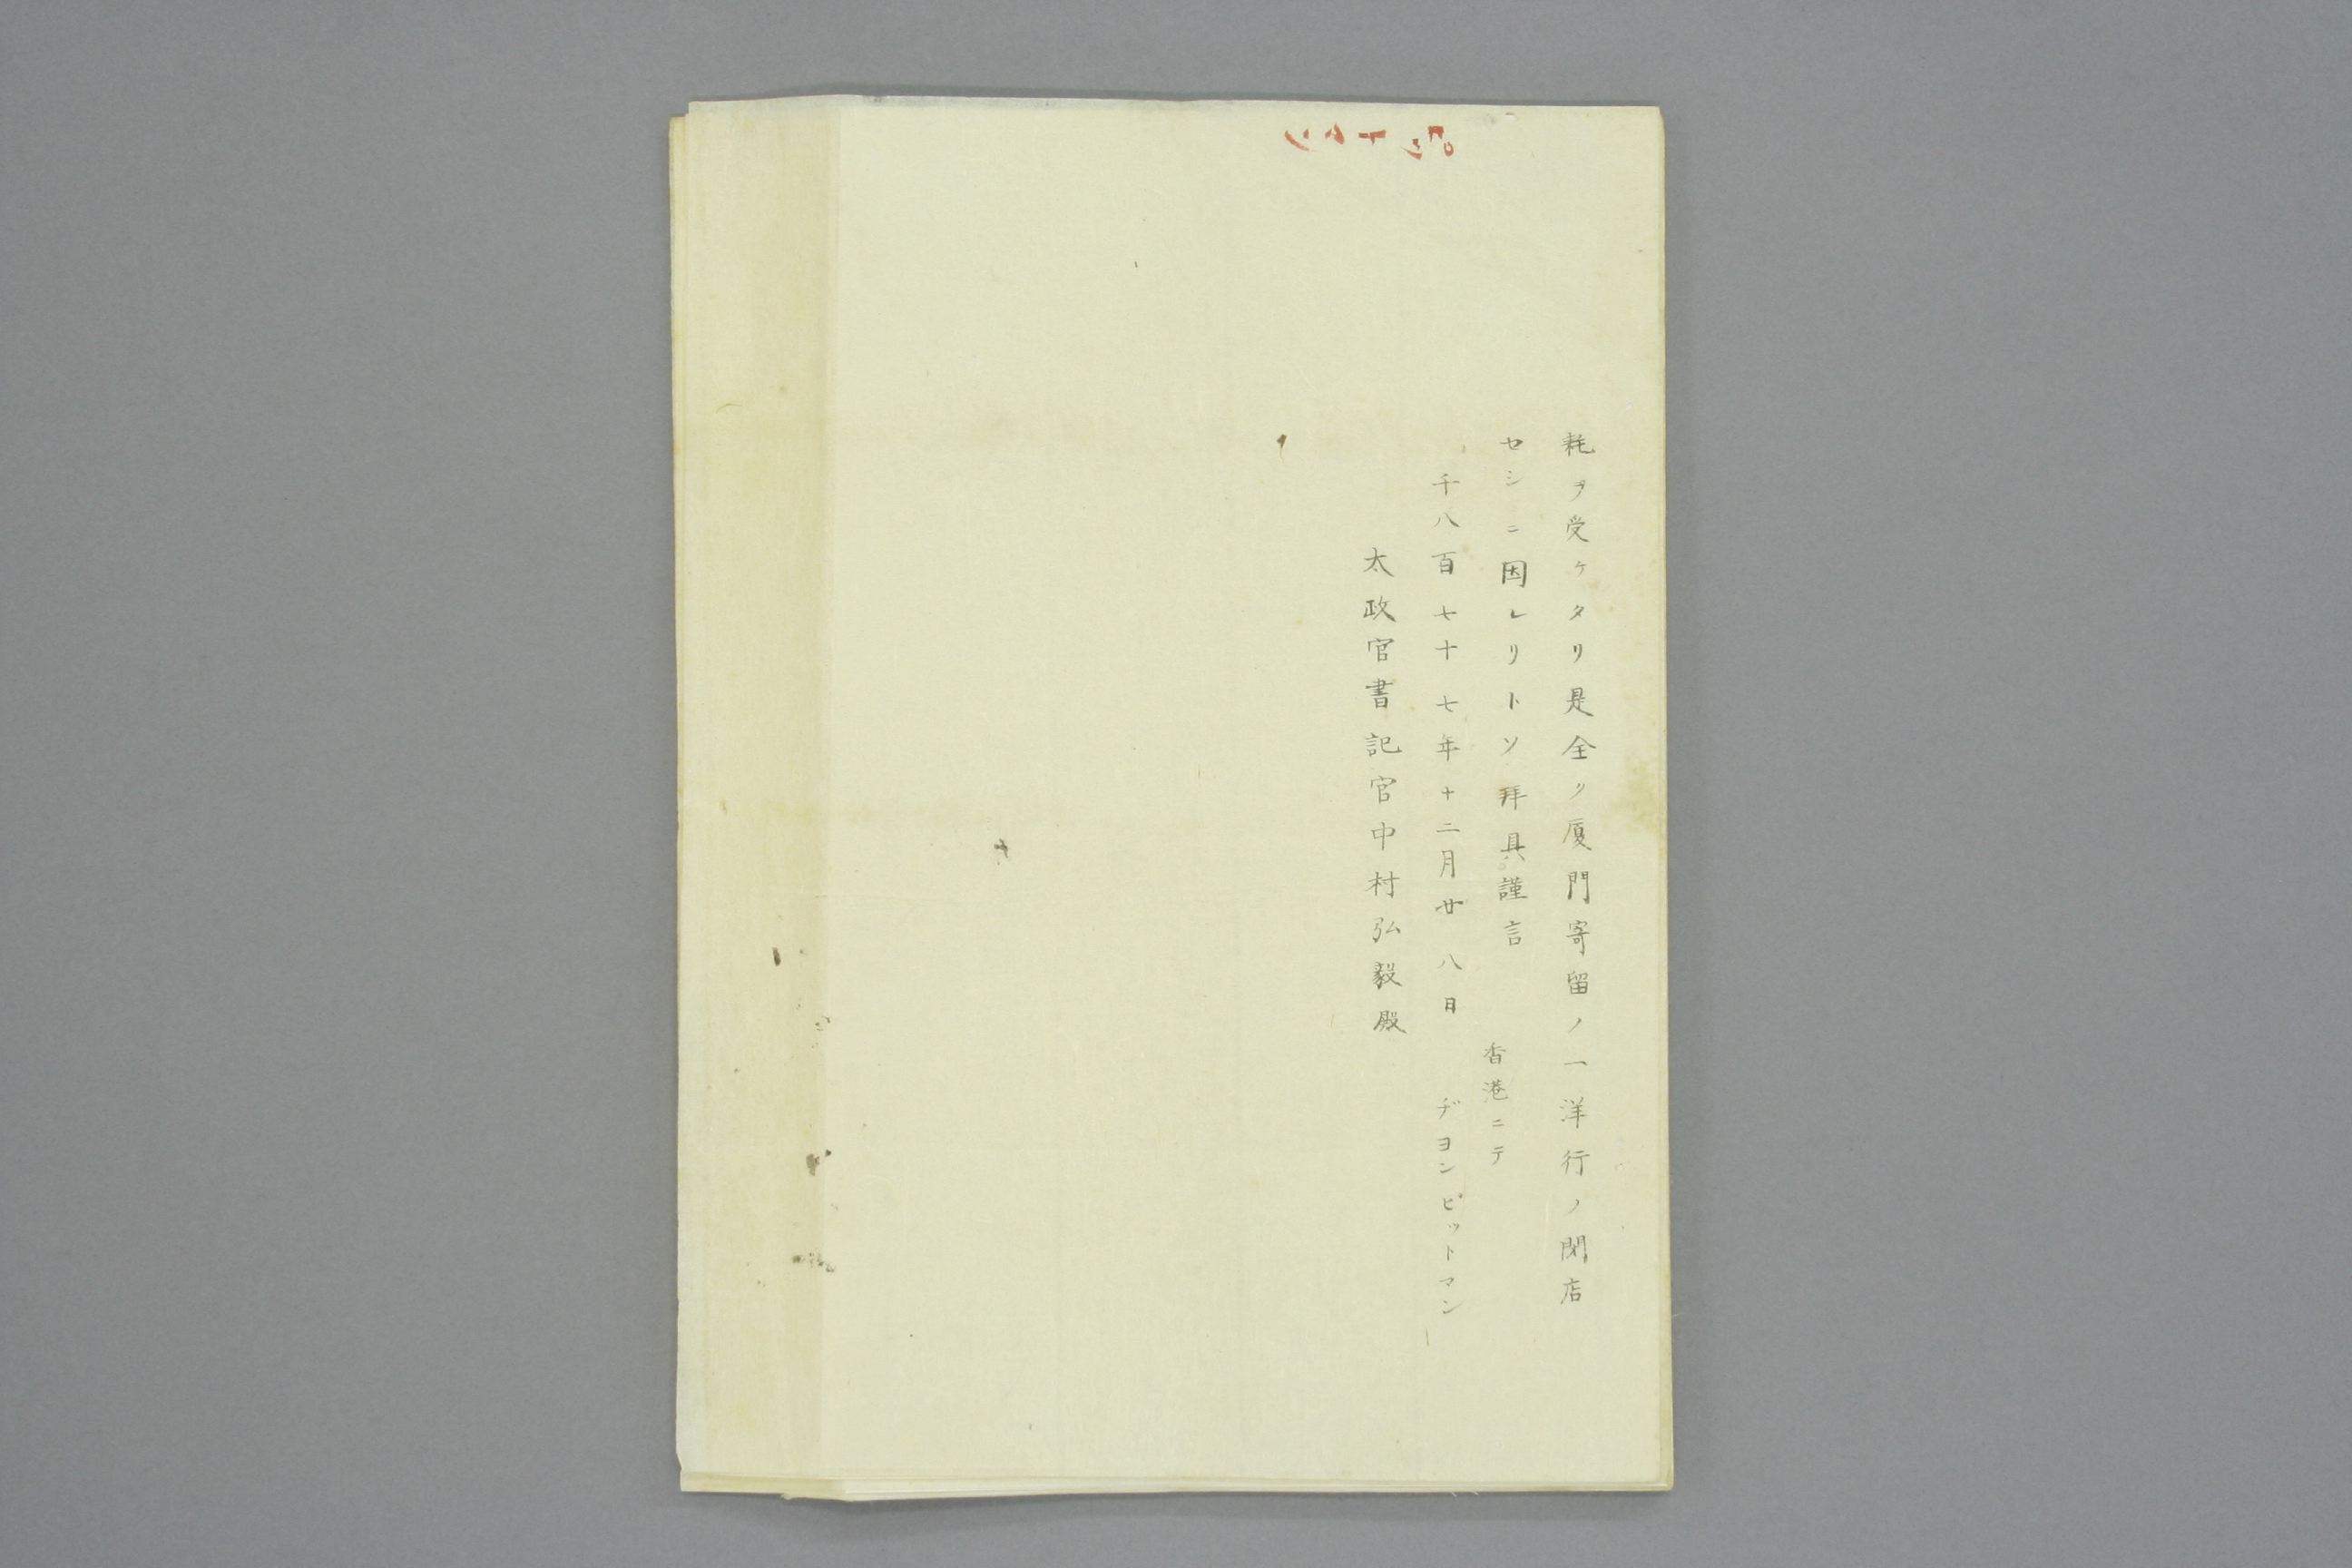 耗ヲ受ケタリ是全ク厦門寄留ノ一洋行ノ閉店
セシニ因レリトソ拜具謹言
香港ニテ
千八百七十七年十二月廿八日　ヂヨンピットマン
太政官書記官中村弘毅殿